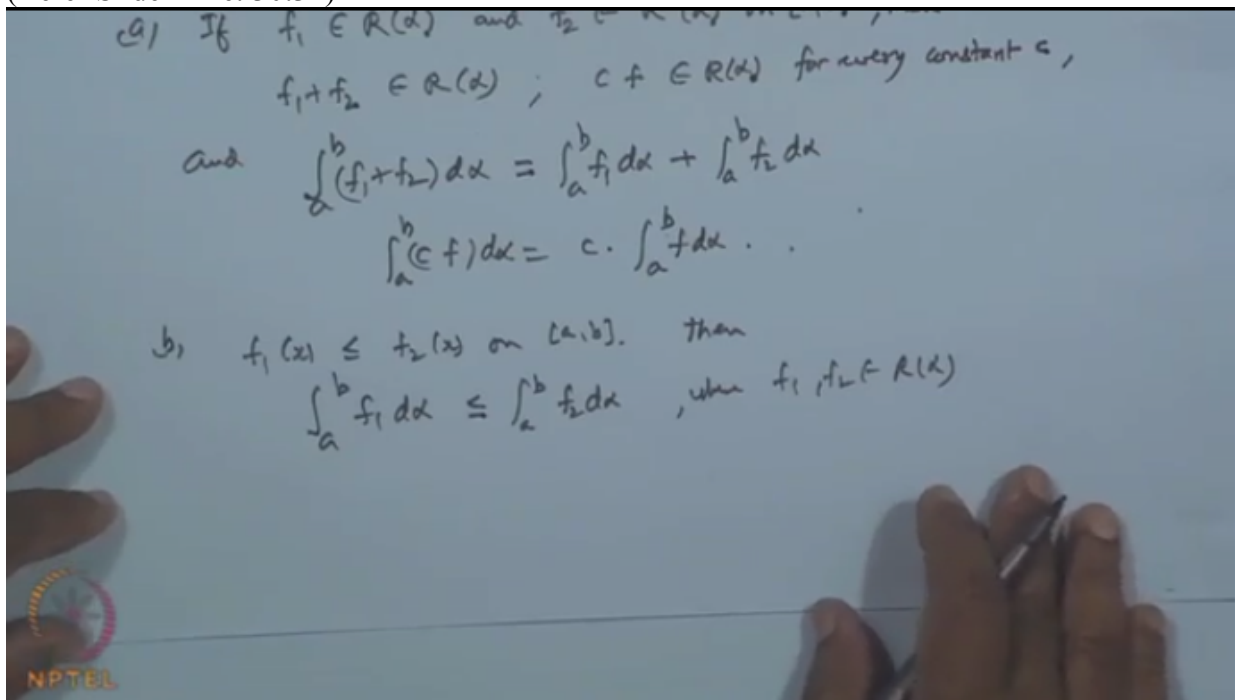 (a) If f₁ ∈ R(α) and f₂ ∈ R(α) on
f₁+f₂ ∈ R(α) ; c f ∈ R(α) for every constant c,
and ∫ₐᵇ (f₁+f₂) dα = ∫ₐᵇ f₁ dα + ∫ₐᵇ f₂ dα
∫ₐᵇ (c f) dα = c . ∫ₐᵇ f dα .
b, f₁(x) ≤ f₂(x) on [a,b]. then
∫ₐᵇ f₁ dα ≤ ∫ₐᵇ f₂ dα , when f₁, f₂ ∈ R(α)
NPTEL